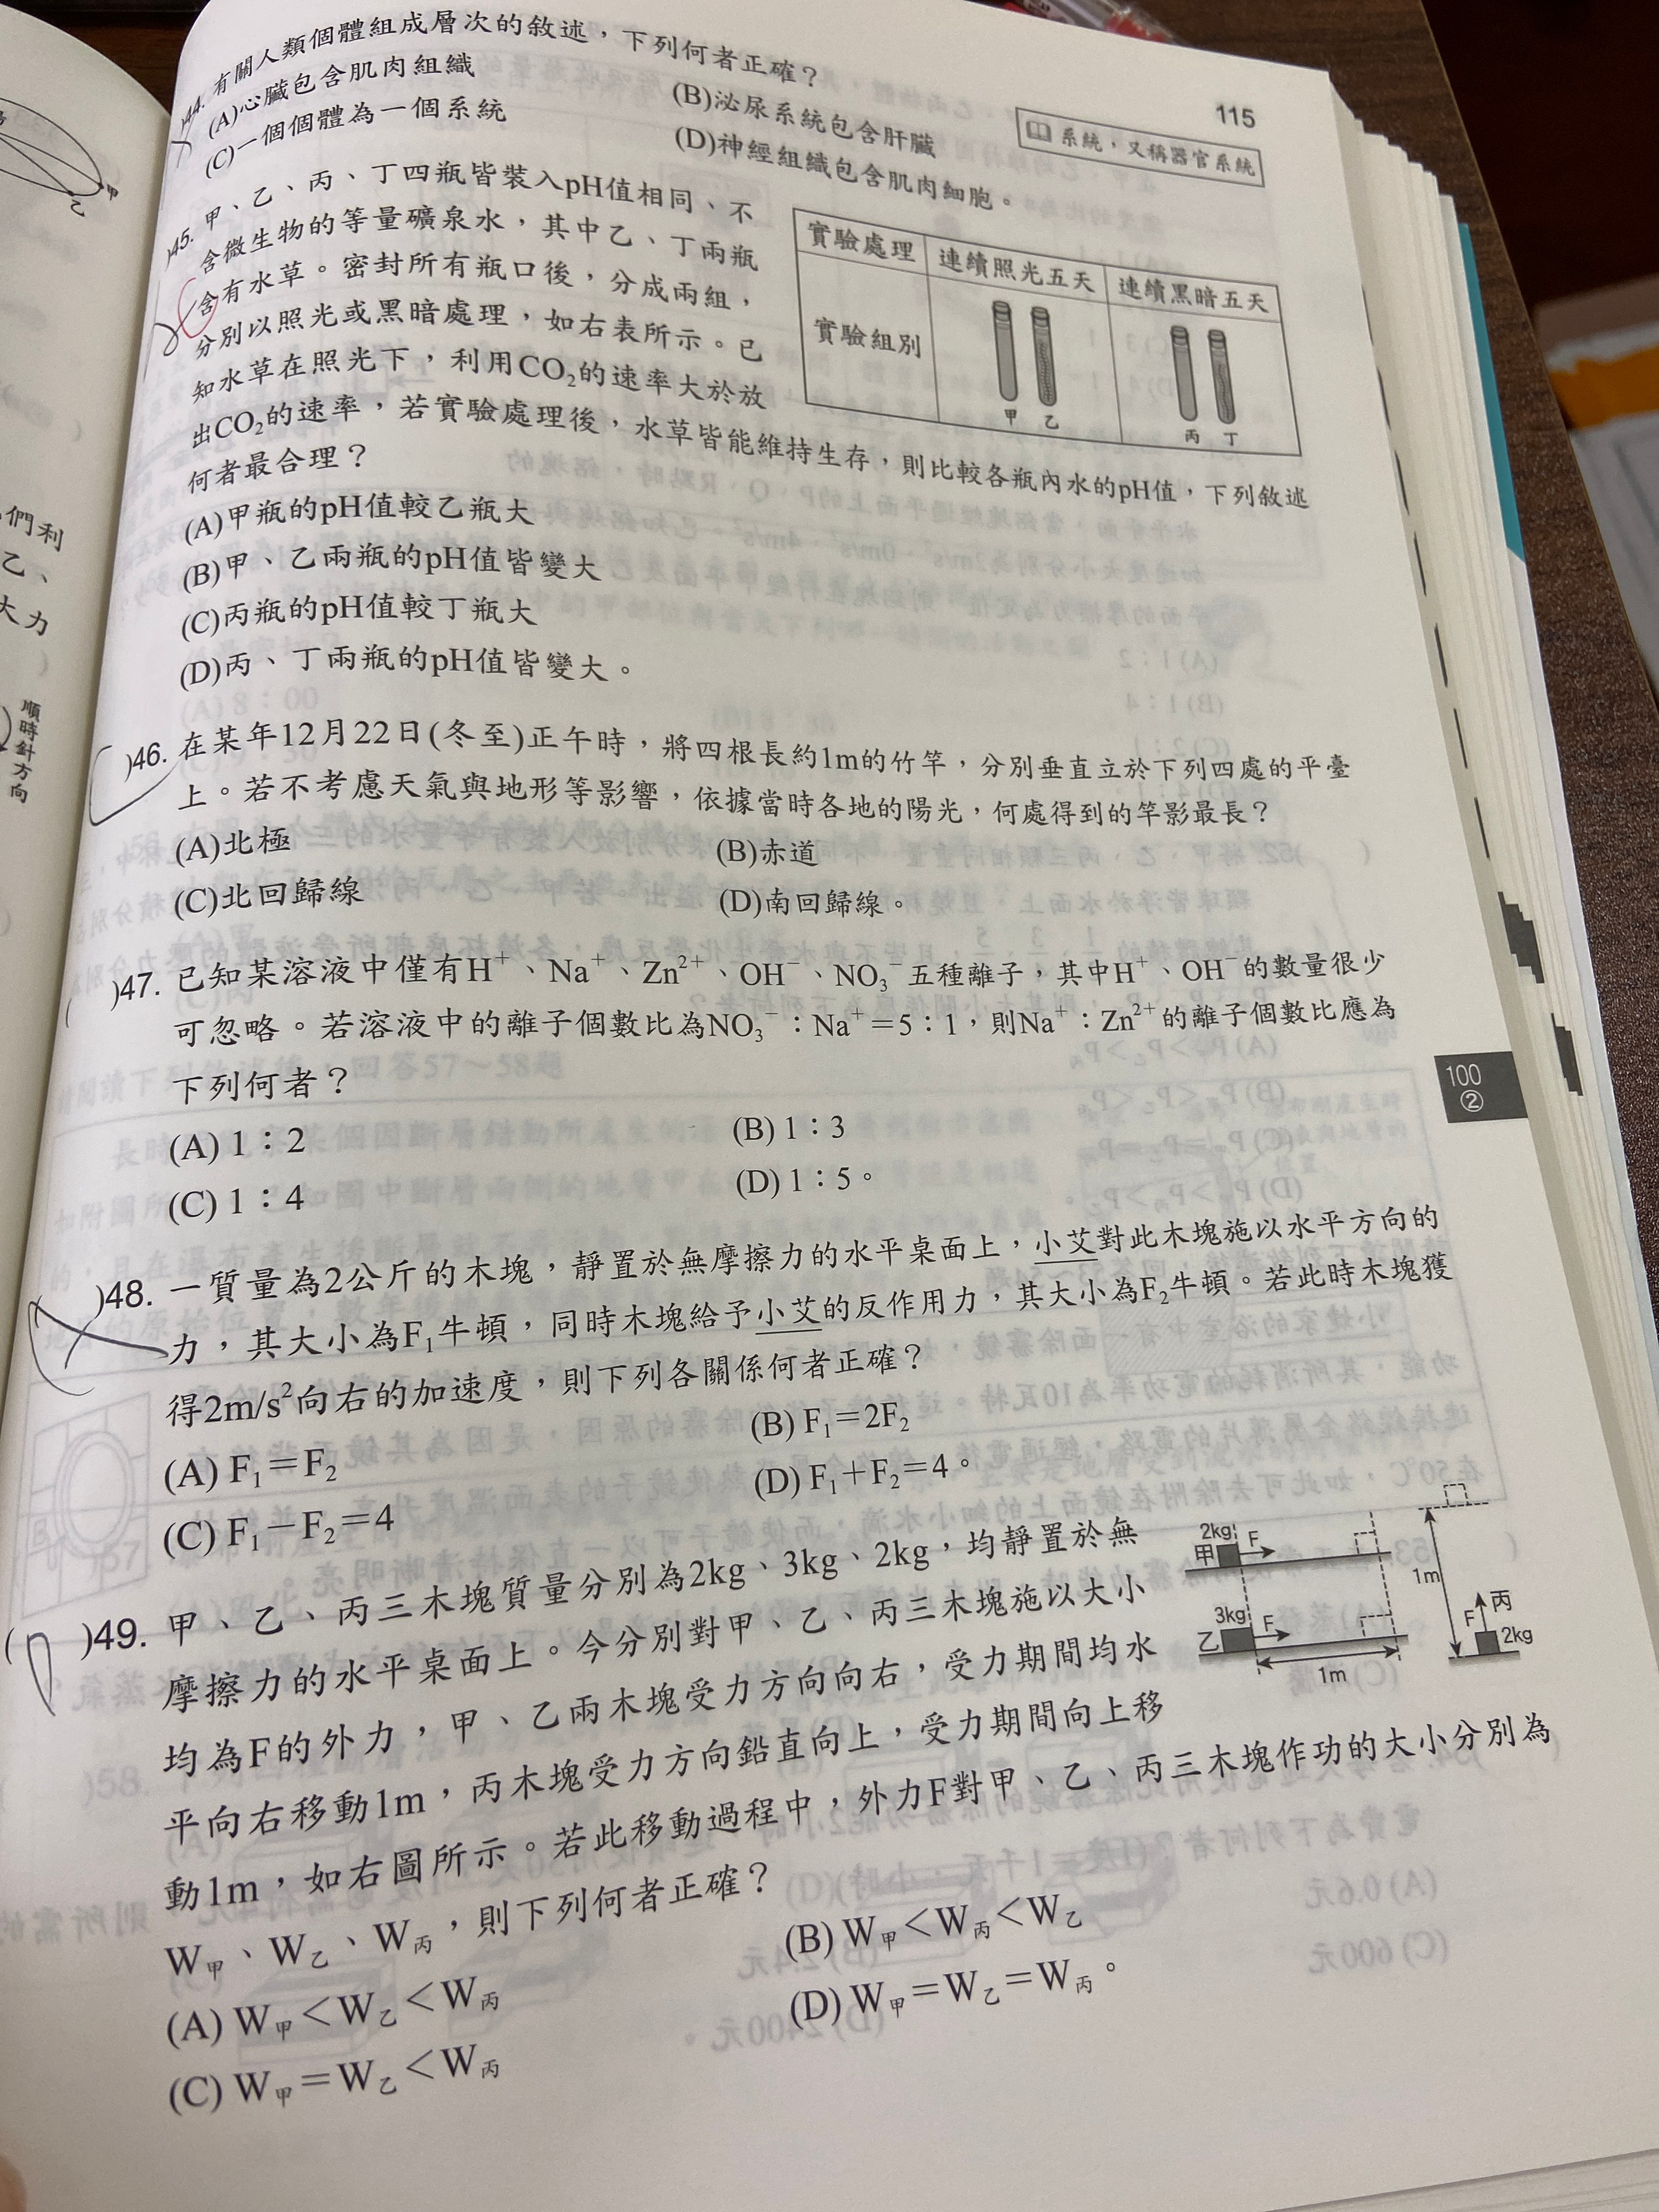 115
)44. 有關人類個體組成層次的敘述，下列何者正確？
(A)心臟包含肌肉組織
(B)泌尿系統包含肝臟
(C)一個個體為一個系統
(D)神經組織包含肌肉細胞。
系統，又稱器官系統
)45. 甲、乙、丙、丁四瓶皆裝入pH值相同、不
含微生物的等量礦泉水，其中乙、丁兩瓶
含有水草。密封所有瓶口後，分成兩組，
分別以照光或黑暗處理，如右表所示。已
知水草在照光下，利用CO₂的速率大於放
出CO₂的速率，若實驗處理後，水草皆能維持生存，則比較各瓶內水的pH值，下列敘述
何者最合理？
實驗處理 連續照光五天 連續黑暗五天
實驗組別
甲 乙 丙 丁
(A)甲瓶的pH值較乙瓶大
(B)甲、乙兩瓶的pH值皆變大
(C)丙瓶的pH值較丁瓶大
(D)丙、丁兩瓶的pH值皆變大。
)46. 在某年12月22日(冬至)正午時，將四根長約1m的竹竿，分別垂直立於下列四處的平臺
上。若不考慮天氣與地形等影響，依據當時各地的陽光，何處得到的竿影最長？
(A)北極
(B)赤道
(C)北回歸線
(D)南回歸線。
( )47. 已知某溶液中僅有H⁺、Na⁺、Zn²⁺、OH⁻、NO₃⁻五種離子，其中H⁺、OH⁻的數量很少
可忽略。若溶液中的離子個數比為NO₃⁻：Na⁺＝5：1，則Na⁺：Zn²⁺的離子個數比應為
下列何者？
(A) 1：2
(B) 1：3
(C) 1：4
(D) 1：5。
100
②
)48. 一質量為2公斤的木塊，靜置於無摩擦力的水平桌面上，小艾對此木塊施以水平方向的
力，其大小為F₁牛頓，同時木塊給予小艾的反作用力，其大小為F₂牛頓。若此時木塊獲
得2m/s²向右的加速度，則下列各關係何者正確？
(A) F₁＝F₂
(B) F₁＝2F₂
(C) F₁－F₂＝4
(D) F₁＋F₂＝4。
( )49. 甲、乙、丙三木塊質量分別為2kg、3kg、2kg，均靜置於無
摩擦力的水平桌面上。今分別對甲、乙、丙三木塊施以大小
均為F的外力，甲、乙兩木塊受力方向向右，受力期間均水
平向右移動1m，丙木塊受力方向鉛直向上，受力期間向上移
動1m，如右圖所示。若此移動過程中，外力F對甲、乙、丙三木塊作功的大小分別為
W甲、W乙、W丙，則下列何者正確？
2kg
甲 F
3kg
乙 F
1m
1m
丙
F
2kg
(A) W甲＜W乙＜W丙
(B) W甲＜W丙＜W乙
(C) W甲＝W乙＜W丙
(D) W甲＝W乙＝W丙。
們利
乙、
大力
)
順時針方向
乙